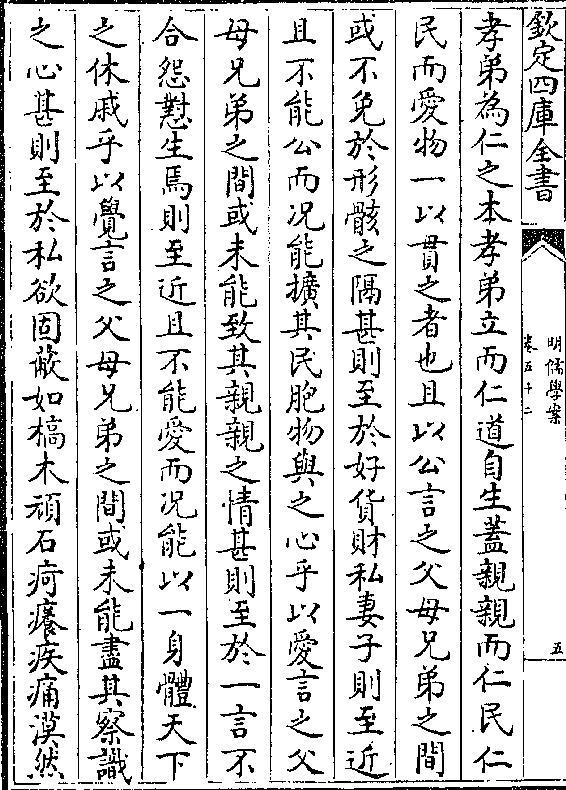 欽定四庫全書
明儒學案
卷五十二
五
孝弟為仁之本孝弟立而仁道自生蓋親親而仁民仁
民而愛物一以貫之者也且以公言之父母兄弟之間
或不免於形骸之隔甚則至於好貨財私妻子則至近
且不能公而况能擴其民胞物與之心乎以愛言之父
母兄弟之間或未能致其親親之情甚則至於一言不
合怨懟生焉則至近且不能愛而况能以一身體天下
之休戚乎以覺言之父母兄弟之間或未能盡其察識
之心甚則至於私欲固蔽如槁木頑石疴癢疾痛漠然